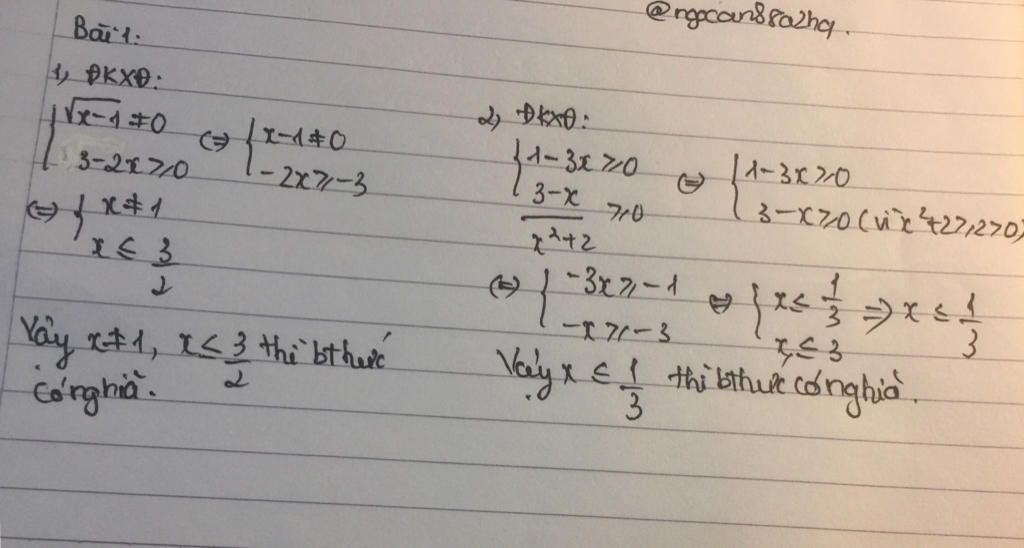 @ngocan88a2hq.
Bài 1:
1, ĐKXĐ:
{ √x-1 ≠ 0
3-2x ≥ 0
⇔ { x-1 ≠ 0
-2x ≥ -3
⇔ { x ≠ 1
x ≤ 3/2
Vậy x ≠ 1, x ≤ 3/2 thì bthức
có nghĩa.
2, ĐKXĐ:
{ 1-3x ≥ 0
3-x/x²+2 ≥ 0
⇔ { 1-3x ≥ 0
3-x ≥ 0 (vì x²+2 ≥ 2 > 0)
⇔ { -3x ≥ -1
-x ≥ -3
⇔ { x ≤ 1/3
x ≤ 3
⇒ x ≤ 1/3
Vậy x ≤ 1/3 thì bthức có nghĩa.